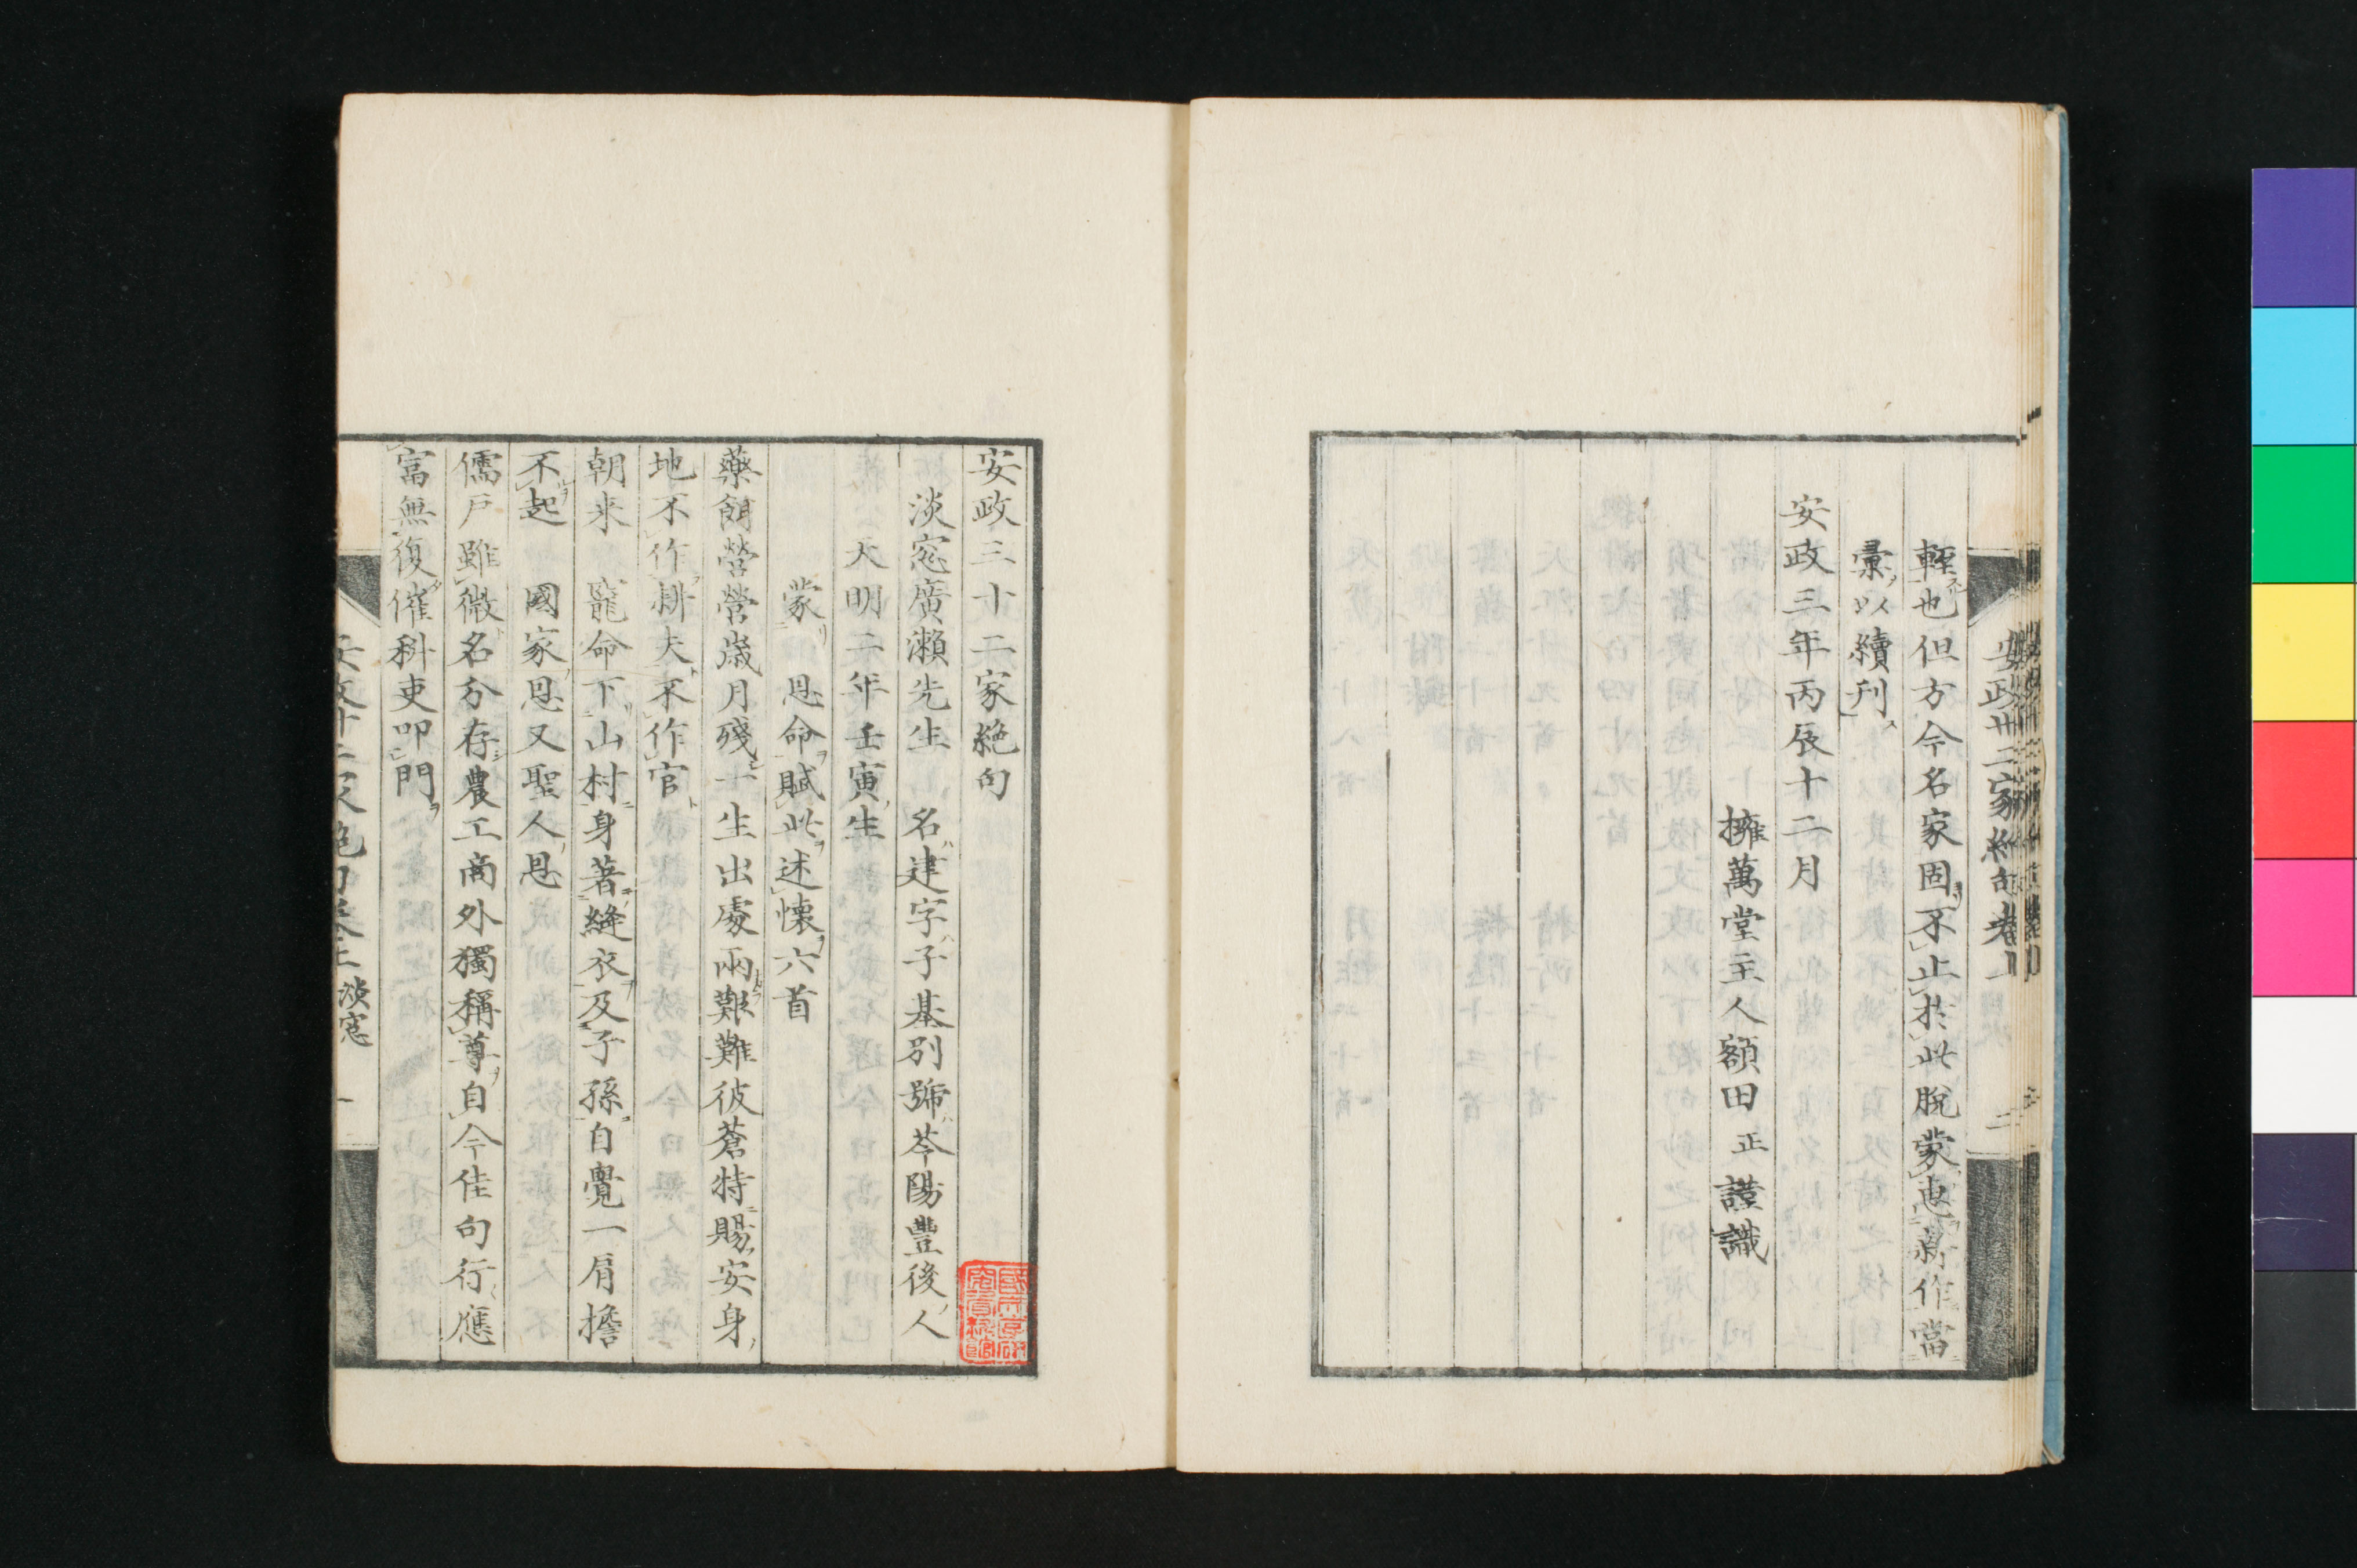 輕也但方今名家固不止於此脫蒙惠新作當
彙以續刊
安政三年丙辰十二月
擁萬堂主人額田正謹識
安政三十二家絶句
淡窓廣瀬先生 名建字子基別號苓陽豐後人
天明二年壬寅生
蒙 恩命賦此述懷六首
藥餌營營歳月殘一生出處兩艱難彼蒼特賜安身
地不作耕夫不作官
朝来 寵命下山村身著縫衣及子孫自覺一肩擔
不起 國家恩又聖人恩
儒戸雖微名分存農工商外獨稱尊自今佳句行應
富無復催科吏叩門